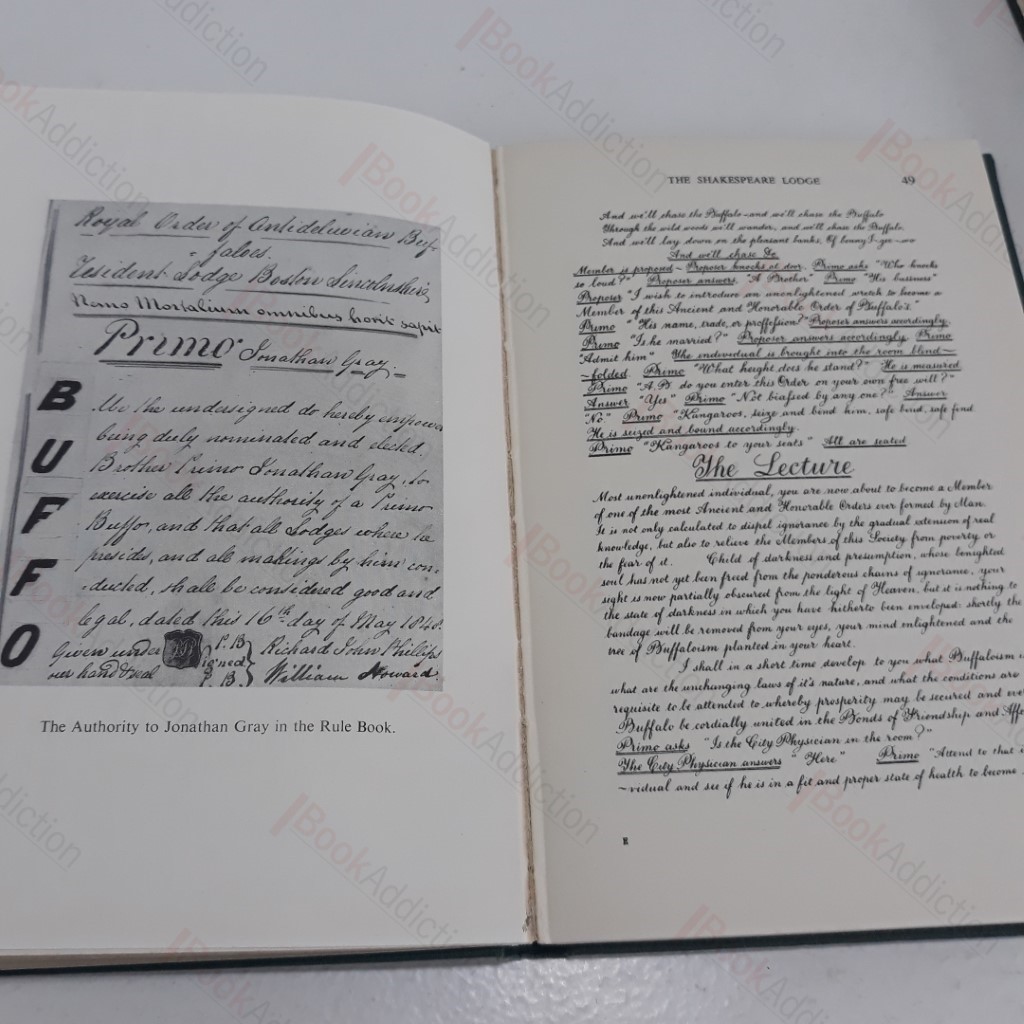 Royal Order of Antideluvian Buf-
faloes.
Tesident Lodge Boston Lincolnshire,
Nemo Mortalium omnibus horis sapit
Primo Jonathan Gray.
BUFFO
We the undersigned do hereby empower
being duly nominated and elected.
Brother Primo Jonathan Gray, to
exercise all the authority of a Primo
Buffo, and that all Lodges where he
presides, and all makings by him con-
ducted, shall be considered good and
legal, dated this 16th day of May 1848.
Given under signed P. B. Richard John Phillips
our hand & seal P. B. William Howard.
The Authority to Jonathan Gray in the Rule Book.
THE SHAKESPEARE LODGE 49
And we'll chase the Buffalo—and we'll chase the Buffalo
Through the wild woods we'll wander, and we'll chase the Buffalo.
And we'll lay down on the pleasant banks, Of
And we'll chase Do
Member is proposed ~ Proposer knocks at door. Primo asks "Who knocks
so loud?" Proposer answers. "A Brother" Primo "His business"
Proposer "I wish to introduce an unenlightened wretch to become a
Member of this Ancient and Honorable Order of Buffalo's."
Primo "His name, trade, or proffession?" Proposer answers accordingly.
Primo "Is he married?" Proposer answers accordingly. Primo
"Admit him" The individual is brought into the room blind~
~folded. Primo "What height does he stand?" He is measured
Primo "A.B. do you enter this Order on your own free will?"
Answer "Yes" Primo "Not biassed by any one?" Answer
"No." Primo "Kangaroos, seize and bind him, safe bind, safe find.
He is seized and bound accordingly.
Primo "Kangaroos to your seats" All are seated
The Lecture
Most unenlightened individual, you are now about to become a Member
of one of the most Ancient and Honorable Orders ever formed by Man.
It is not only calculated to dispel ignorance by the gradual extension of real
knowledge, but also to relieve the Members of this Society from poverty or
the fear of it. Child of darkness and presumption, whose benighted
soul has not yet been freed from the ponderous chains of ignorance, your
sight is now partially obscured from the light of Heaven, but it is nothing to
the state of darkness in which you have hitherto been enveloped: shortly the
bandage will be removed from your eyes, your mind enlightened and the
tree of Buffaloism planted in your heart.
I shall in a short time develop to you what Buffaloism is
what are the unchanging laws of it's nature, and what the conditions are
requisite to be attended to whereby prosperity may be secured and eve
Buffalo be cordially united in the Bonds of Friendship and Affe
Primo asks "Is the City Physician in the room?"
The City Physician answers "Here" Primo "Attend to that i
~vidual and see if he is in a fit and proper state of health to become
E
BookAddiction